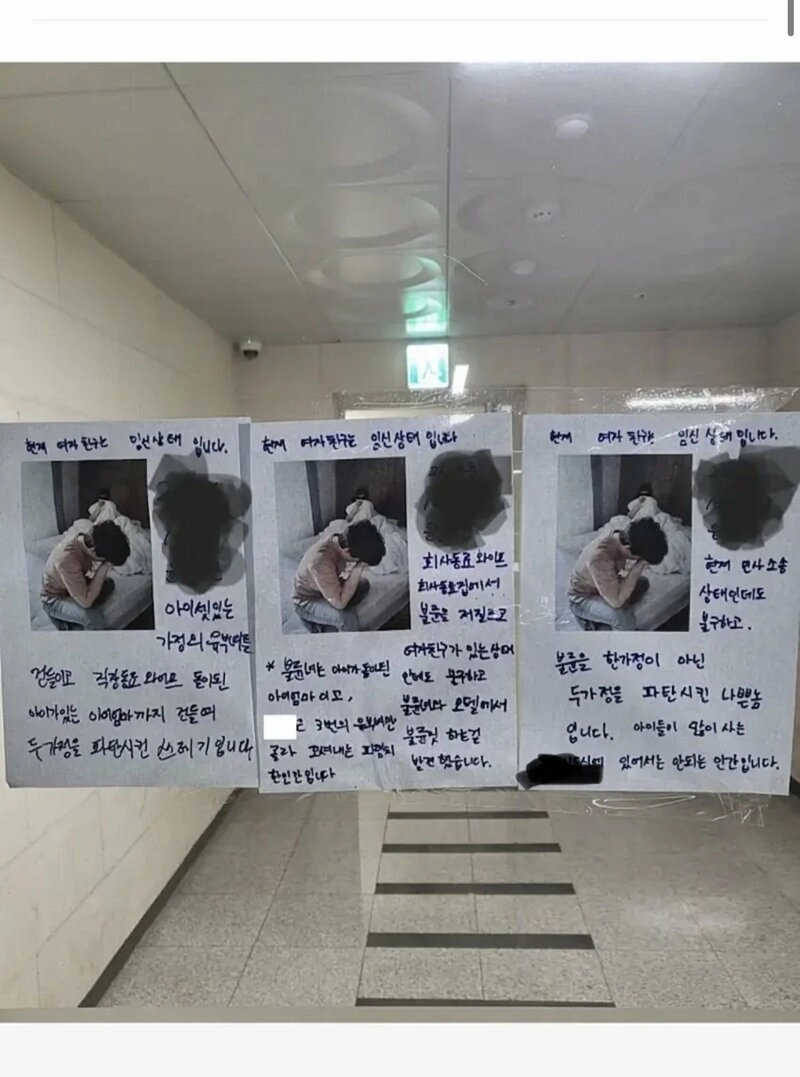 현재 여자친구는 임신상태 입니다.
아이셋있는
가정의 유부녀를
건들이고 직장동료 와이프 돌이된
아이가있는 아이엄마까지 건들여
두가정을 파탄시킨 쓰레기입니다
현재 여자친구는 임신상태입니다
회사동료 와이프
회사동료집에서
불륜을 저질르고
여자친구가 있는상태
인데도 불구하고
불륜녀와 모텔에서
불륜짓 하는걸
발견했습니다.
* 불륜녀는 아이가돌이된
아이엄마이고,
3번의 유부녀만
골라 꼬셔내는 파렴치
한인간입니다
현재 여자친구는 임신상태입니다.
현재 민사소송
상태인데도
불구하고.
불륜을 한가정이 아닌
두가정을 파탄시킨 나쁜놈
입니다. 아이들이 많이 사는
있어서는 안되는 인간입니다.